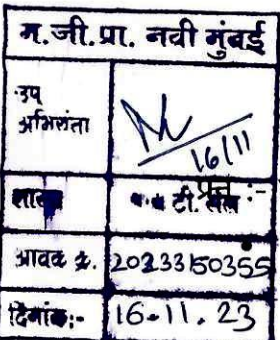 म.जी.प्रा. नवी मुंबई
उप
अभियंता
16/11
प्रत :-
टी. सेल
आवक क्र. 20233150355
दिनांक:- 16-11.23